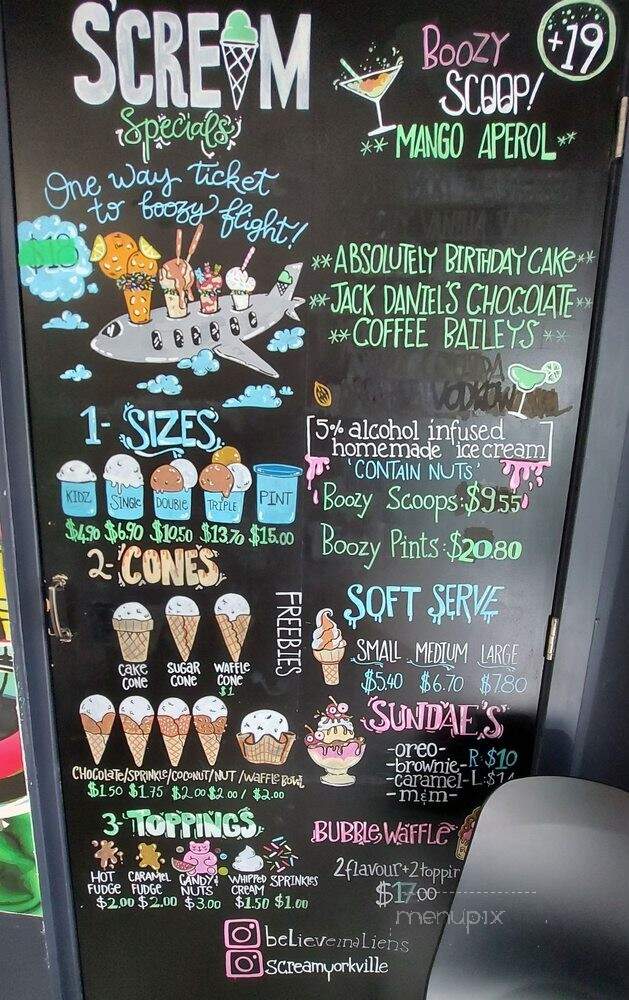 S'CREAM
Specials
One way ticket
to boozy flight!
$18
1- SIZES
KIDZ SINGLE DOUBLE TRIPLE PINT
$4.90 $6.90 $10.50 $13.70 $15.00
2- CONES
CAKE CONE
SUGAR CONE
WAFFLE CONE
$1
FREEBIES
CHOCOLATE/SPRINKLE/COCONUT/NUT/WAFFLE BOWL
$1.50 $1.75 $2.00 $2.00 / $2.00
3- TOPPINGS
HOT FUDGE
CARAMEL FUDGE
CANDY & NUTS
WHIPPED CREAM
SPRINKLES
$2.00 $2.00 $3.00 $1.50 $1.00
BOOZY
SCOOP!
+19
** MANGO APEROL **
**ABSOLUTELY BIRTHDAY CAKE**
**JACK DANIEL'S CHOCOLATE**
**COFFEE BAILEYS**
[5% alcohol infused
homemade ice cream]
'CONTAIN NUTS'
Boozy Scoops: $9.55
Boozy Pints: $20.80
SOFT SERVE
SMALL MEDIUM LARGE
$5.40 $6.70 $7.80
SUNDAE'S
-oreo-
-brownie- R: $10
-caramel- L: $14
-m&m-
BUBBLE WAFFLE
2 flavour + 2 toppin
$17.00
menupix
believeinaliens
screamyorkville